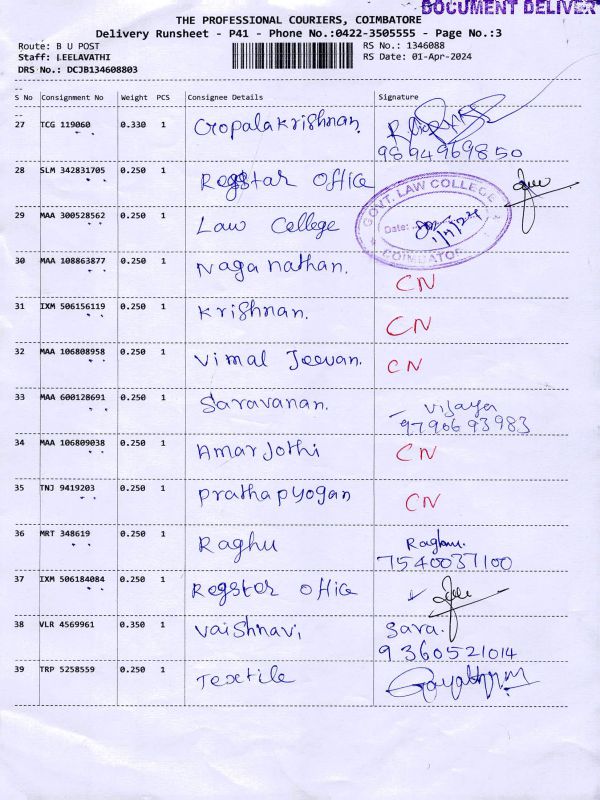 DOCUMENT DELIVER
THE PROFESSIONAL COURIERS, COIMBATORE
Delivery Runsheet - P41 - Phone No.:0422-3505555 - Page No.:3
Route: B U POST
RS No.: 1346088
Staff: LEELAVATHI
RS Date: 01-Apr-2024
DRS No.: DCJB134608803
S No Consignment No Weight PCS Consignee Details Signature
27 TCG 119060 0.330 1 Gopalakrishnan
9894969850
28 SLM 342831705 0.250 1 Regstar office
29 MAA 300528562 0.250 1 Law College
GOVT. LAW COLLEGE
Date:
COIMBATORE
30 MAA 108863877 0.250 1 Naganathan. CN
31 IXM 506156119 0.250 1 Krishnan. CN
32 MAA 106808958 0.250 1 Vimal Jeevan. CN
33 MAA 600128691 0.250 1 Saravanan. Vijaya
9790693983
34 MAA 106809038 0.250 1 Amar Jothi CN
35 TNJ 9419203 0.250 1 Prathapyogan CN
36 MRT 348619 0.250 1 Raghu Raghu.
7540037100
37 IXM 506184084 0.250 1 Regstar office
38 VLR 4569961 0.350 1 Vaishnavi Sara.
9360521014
39 TRP 5258559 0.250 1 Textile